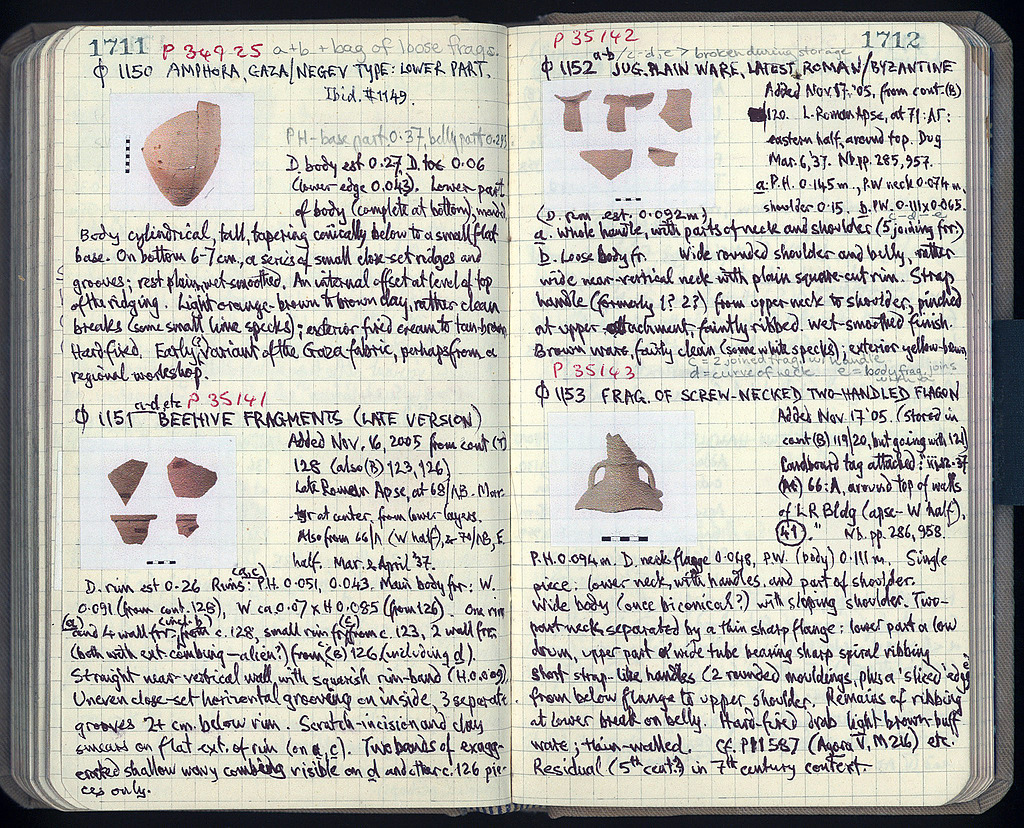 1711 P 34925 a+b + bag of loose frags.
Φ 1150 AMPHORA, GAZA/NEGEV TYPE: LOWER PART.
Ibid. #1149.
PH-base part 0.37, belly part 0.293
D. body est 0.27, D. toe 0.06
(lower edge 0.043). Lower part
of body (complete at bottom), mended
Body cylindrical, tall, tapering conically below to a small flat
base. On bottom 6-7 cm., a series of small close-set ridges and
grooves; rest plain, wet-smoothed. An internal offset at level of top
of the ridging. Light orange-brown to brown clay, rather clean
breaks (some small lime specks); exterior fired cream to tan-brown
Hard-fired. Early(?) variant of the Gaza fabric, perhaps from a
regional workshop.
a-d etc P 35141
Φ 1151 BEEHIVE FRAGMENTS (LATE VERSION)
Added Nov. 16, 2005 from cont (T)
128 (also (B) 123, 126)
Late Roman Apse, at 68/ΛΒ. Mar-
ter at center, from lower layers.
Also from 66/Λ (W half), & 70/ΛΒ, E
half. Mar. & April '37.
D. rim est 0.26 Rims: (a,c) P.H. 0.051, 0.043. Main body fr: W.
0.091 (from cont. 128), W ca 0.07 x H 0.085 (from 126) One rim
(a) and 4 wall frr. (incl. b) from c. 128, small rim fr (c) from c. 123, 2 wall frr.
(both with ext. combing - alien?) from (B) 126 (including d).
Straight near-vertical wall, with squarish rim-band (H. 0.009),
Uneven close-set horizontal grooving on inside, 3 separate
grooves 2+ cm. below rim. Scratch-incision and clay
smears on flat ext. of rim (on a, c). Two bands of exagg-
erated shallow wavy combing visible on d and other c. 126 pie-
ces only.
P 35142 1712
a-b / c-d, e > broken during storage
Φ 1152 JUG. PLAIN WARE, LATEST ROMAN/BYZANTINE
Added Nov. 17 '05, from cont. (B)
120. L. Roman Apse, at 71: ΛΓ:
eastern half, around top. Dug
Mar. 6, 37. Nb. pp. 285, 957.
a: P.H. 0.145 m., P.W. neck 0.074 m,
shoulder 0.15 b. P.W. 0.111 x 0.065.
c-d-e
(D. rim est. 0.092 m),
a. whole handle, with parts of neck and shoulder (5 joining frr.)
b. Loose body fr. Wide rounded shoulder and belly, rather
wide near-vertical neck with plain square-cut rim. Strap
handle (formerly 1? 2?) from upper neck to shoulder, pinched
at upper attachment, faintly ribbed. Wet-smoothed finish.
Brown ware, fairly clean (some white specks); exterior yellow-brown
c = 2 joined frags w/ handle
P 35143 d = curve of neck e = body frag, joins
Φ 1153 FRAG. OF SCREW-NECKED TWO-HANDLED FLAGON
Added Nov 17 '05. (stored in
cont (B) 119/20, but going with 121)
Cardboard tag attached:
66: Λ, around top of walls
of L.R Bldg (apse - W half),
(41) " Nb. pp. 286, 958.
P.H. 0.094 m. D. neck flange 0.048, P.W. (body) 0.111 m. Single
piece: lower neck, with handles, and part of shoulder.
Wide body (once biconical?) with sloping shoulder. Two-
part neck, separated by a thin sharp flange: lower part a low
drum, upper part a wide tube bearing sharp spiral ribbing
short strap-like handles (2 rounded mouldings, plus a 'sliced' edge)
from below flange to upper shoulder. Remains of ribbing
at lower break on belly. Hard-fired drab light brown-buff
ware; thin-walled. Cf. P 11587 (Agora V, M 216) etc.
Residual (5th cent.?) in 7th century context.